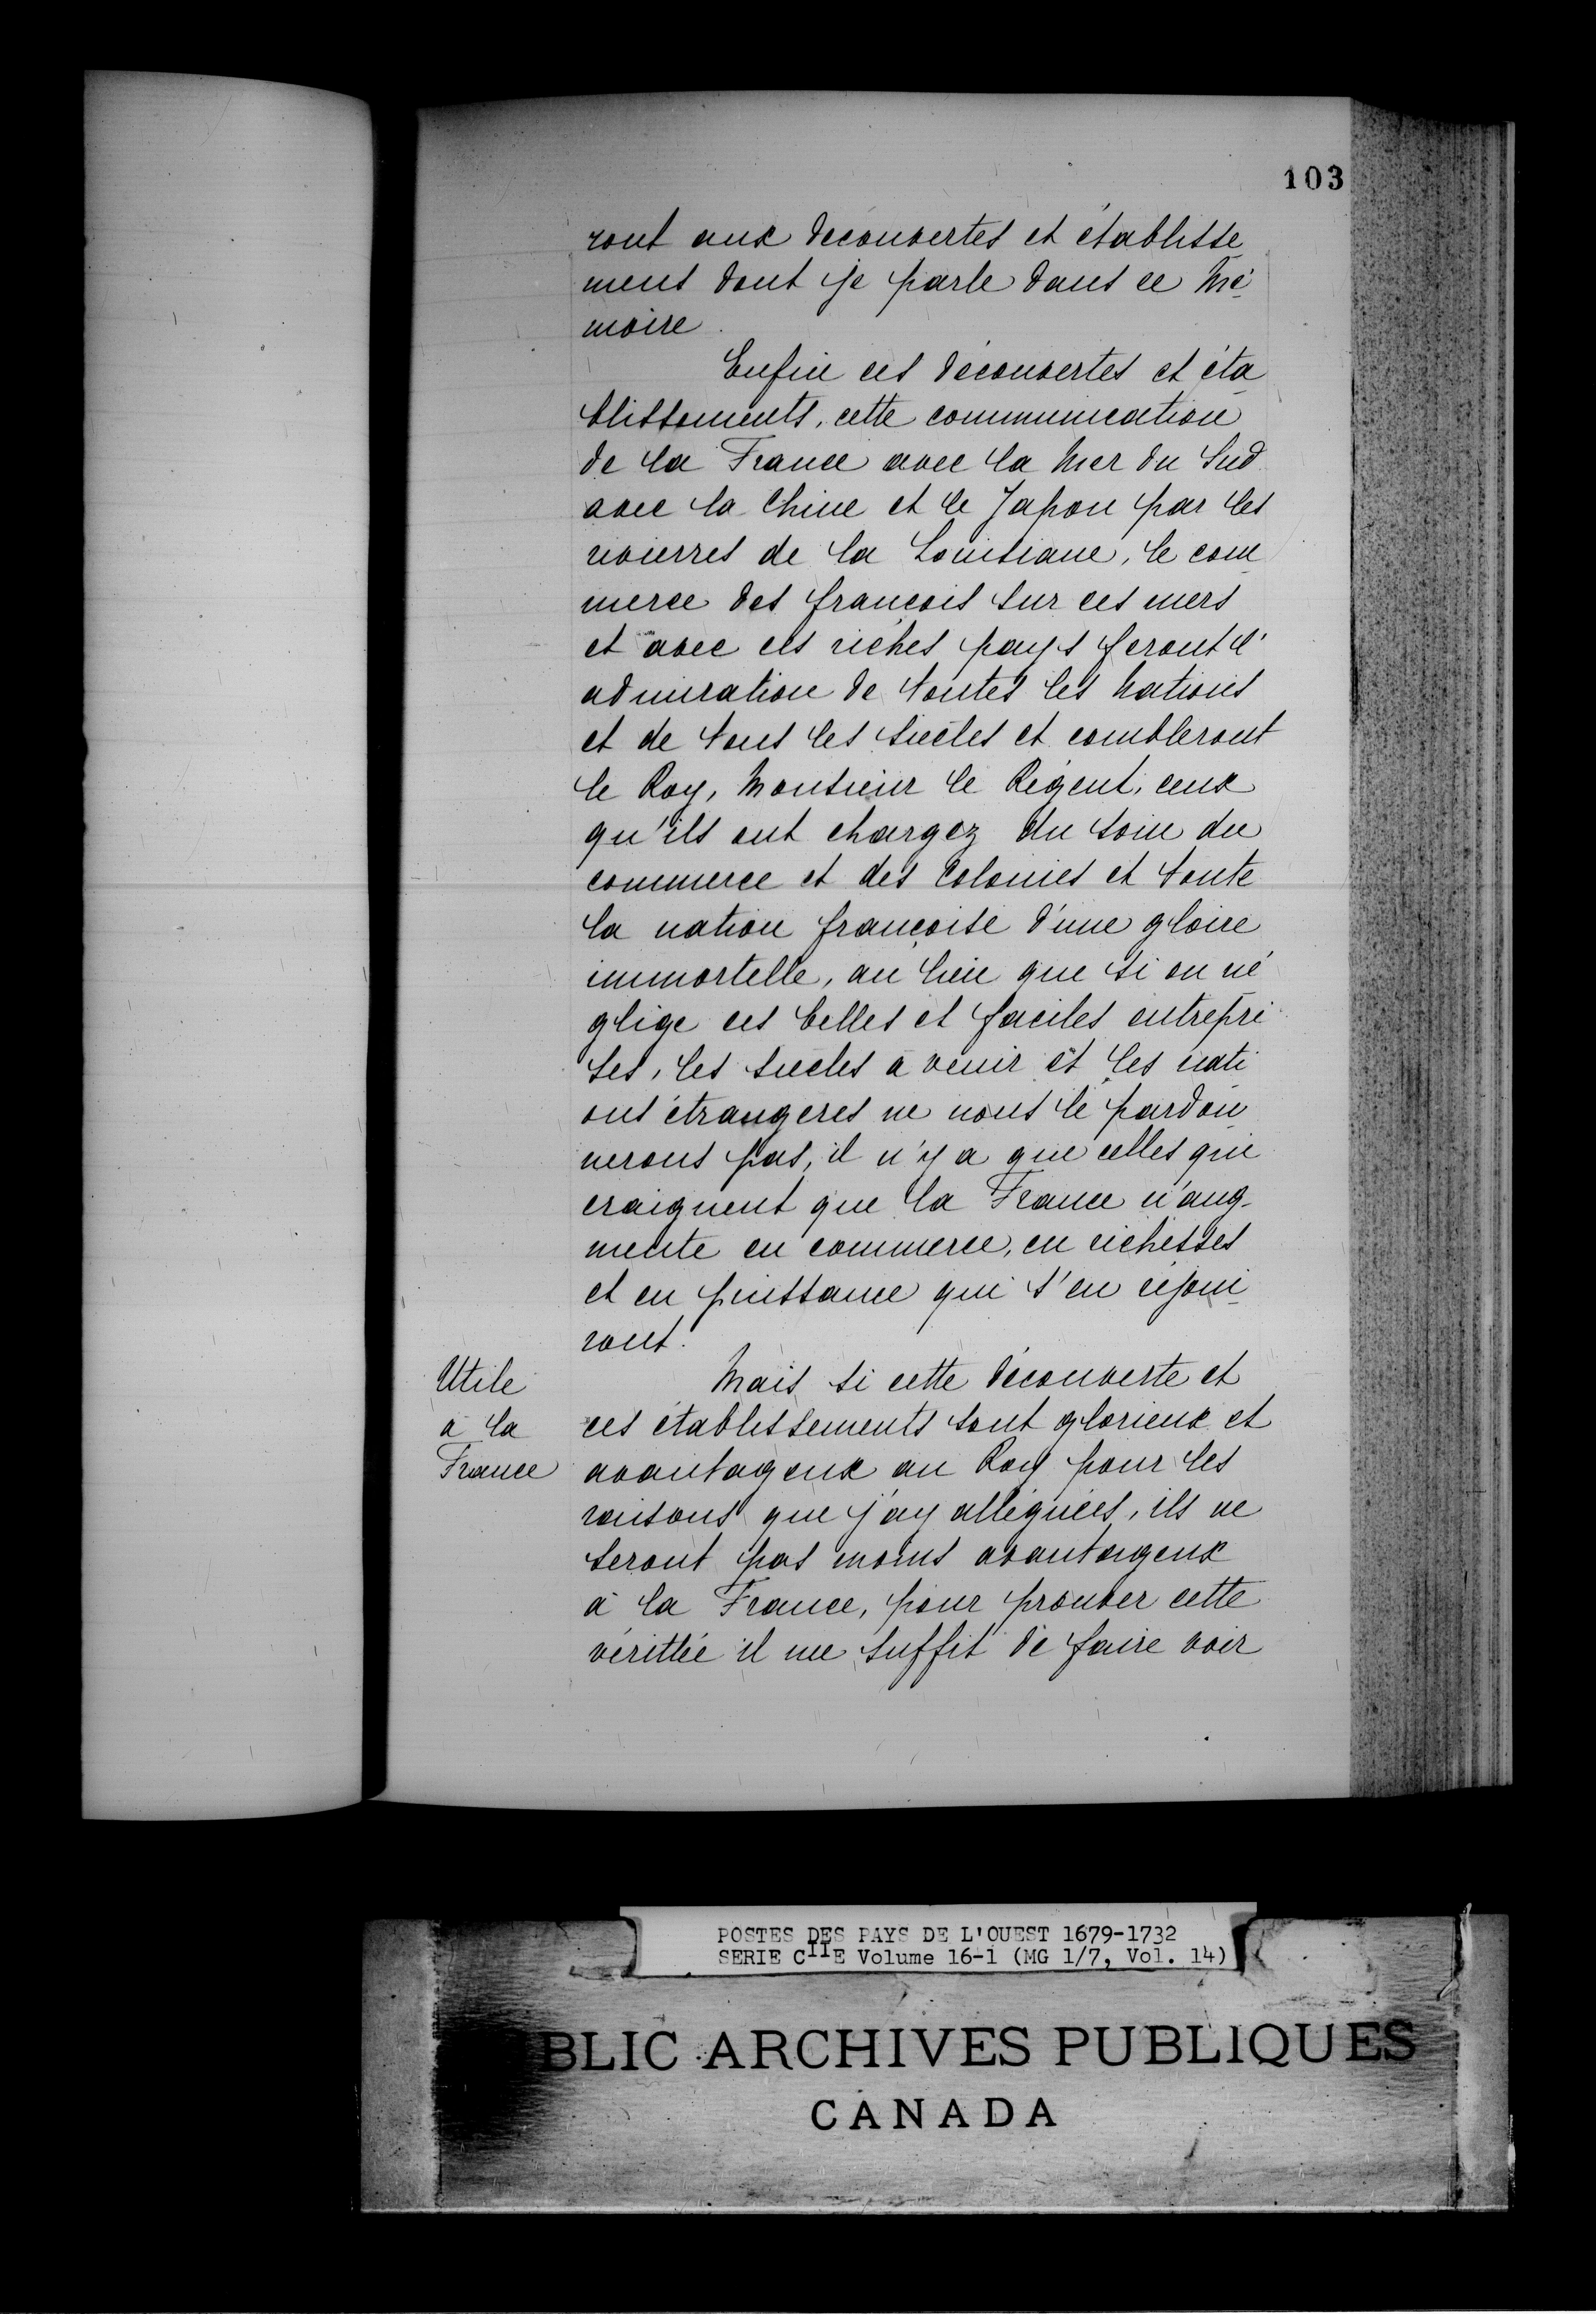 103
ront aux découvertes et établisse
ment dont je parle dans ce Mé
moire.
Enfin ces découvertes et éta
blissements, cette communication
de la France avec la Mer du Sud
avec la Chine et le Japon par les
rivierres de la Louisiane, le com
merce des françois sur ces mers
et avec ces riches pays feront l'
admiration de toutes les Nations
et de tous les siècles et combleront
le Roy, Monsieur le Régent, ceux
qu'ils ont chargez du soin du
commerce et des Colonies et toute
la nation françoise d'une gloire
immortelle, au lieu que si on né
glige ces belles et faciles entrepri
ses, les siecles à venir et les nati
ons étrangeres ne nous le pardon
nerons pas, il n'y a que celles qui
craignent que la France n'aug-
mente en commerce, en richesses
et en puissance qui s'en réjoui
ront.
Utile
à la
France
Mais si cette découverte et
ces établissements sont glorieux et
avantageux au Roy pour les
raisons que j'ay alléguées, ils ne
seront pas moins avantageux
à la France, pour prouver cette
vérittée il me suffit de faire voir
POSTES DES PAYS DE L'OUEST 1679-1732
SERIE CIIE Volume 16-1 (MG 1/7, Vol. 14)
BLIC ARCHIVES PUBLIQUES
CANADA